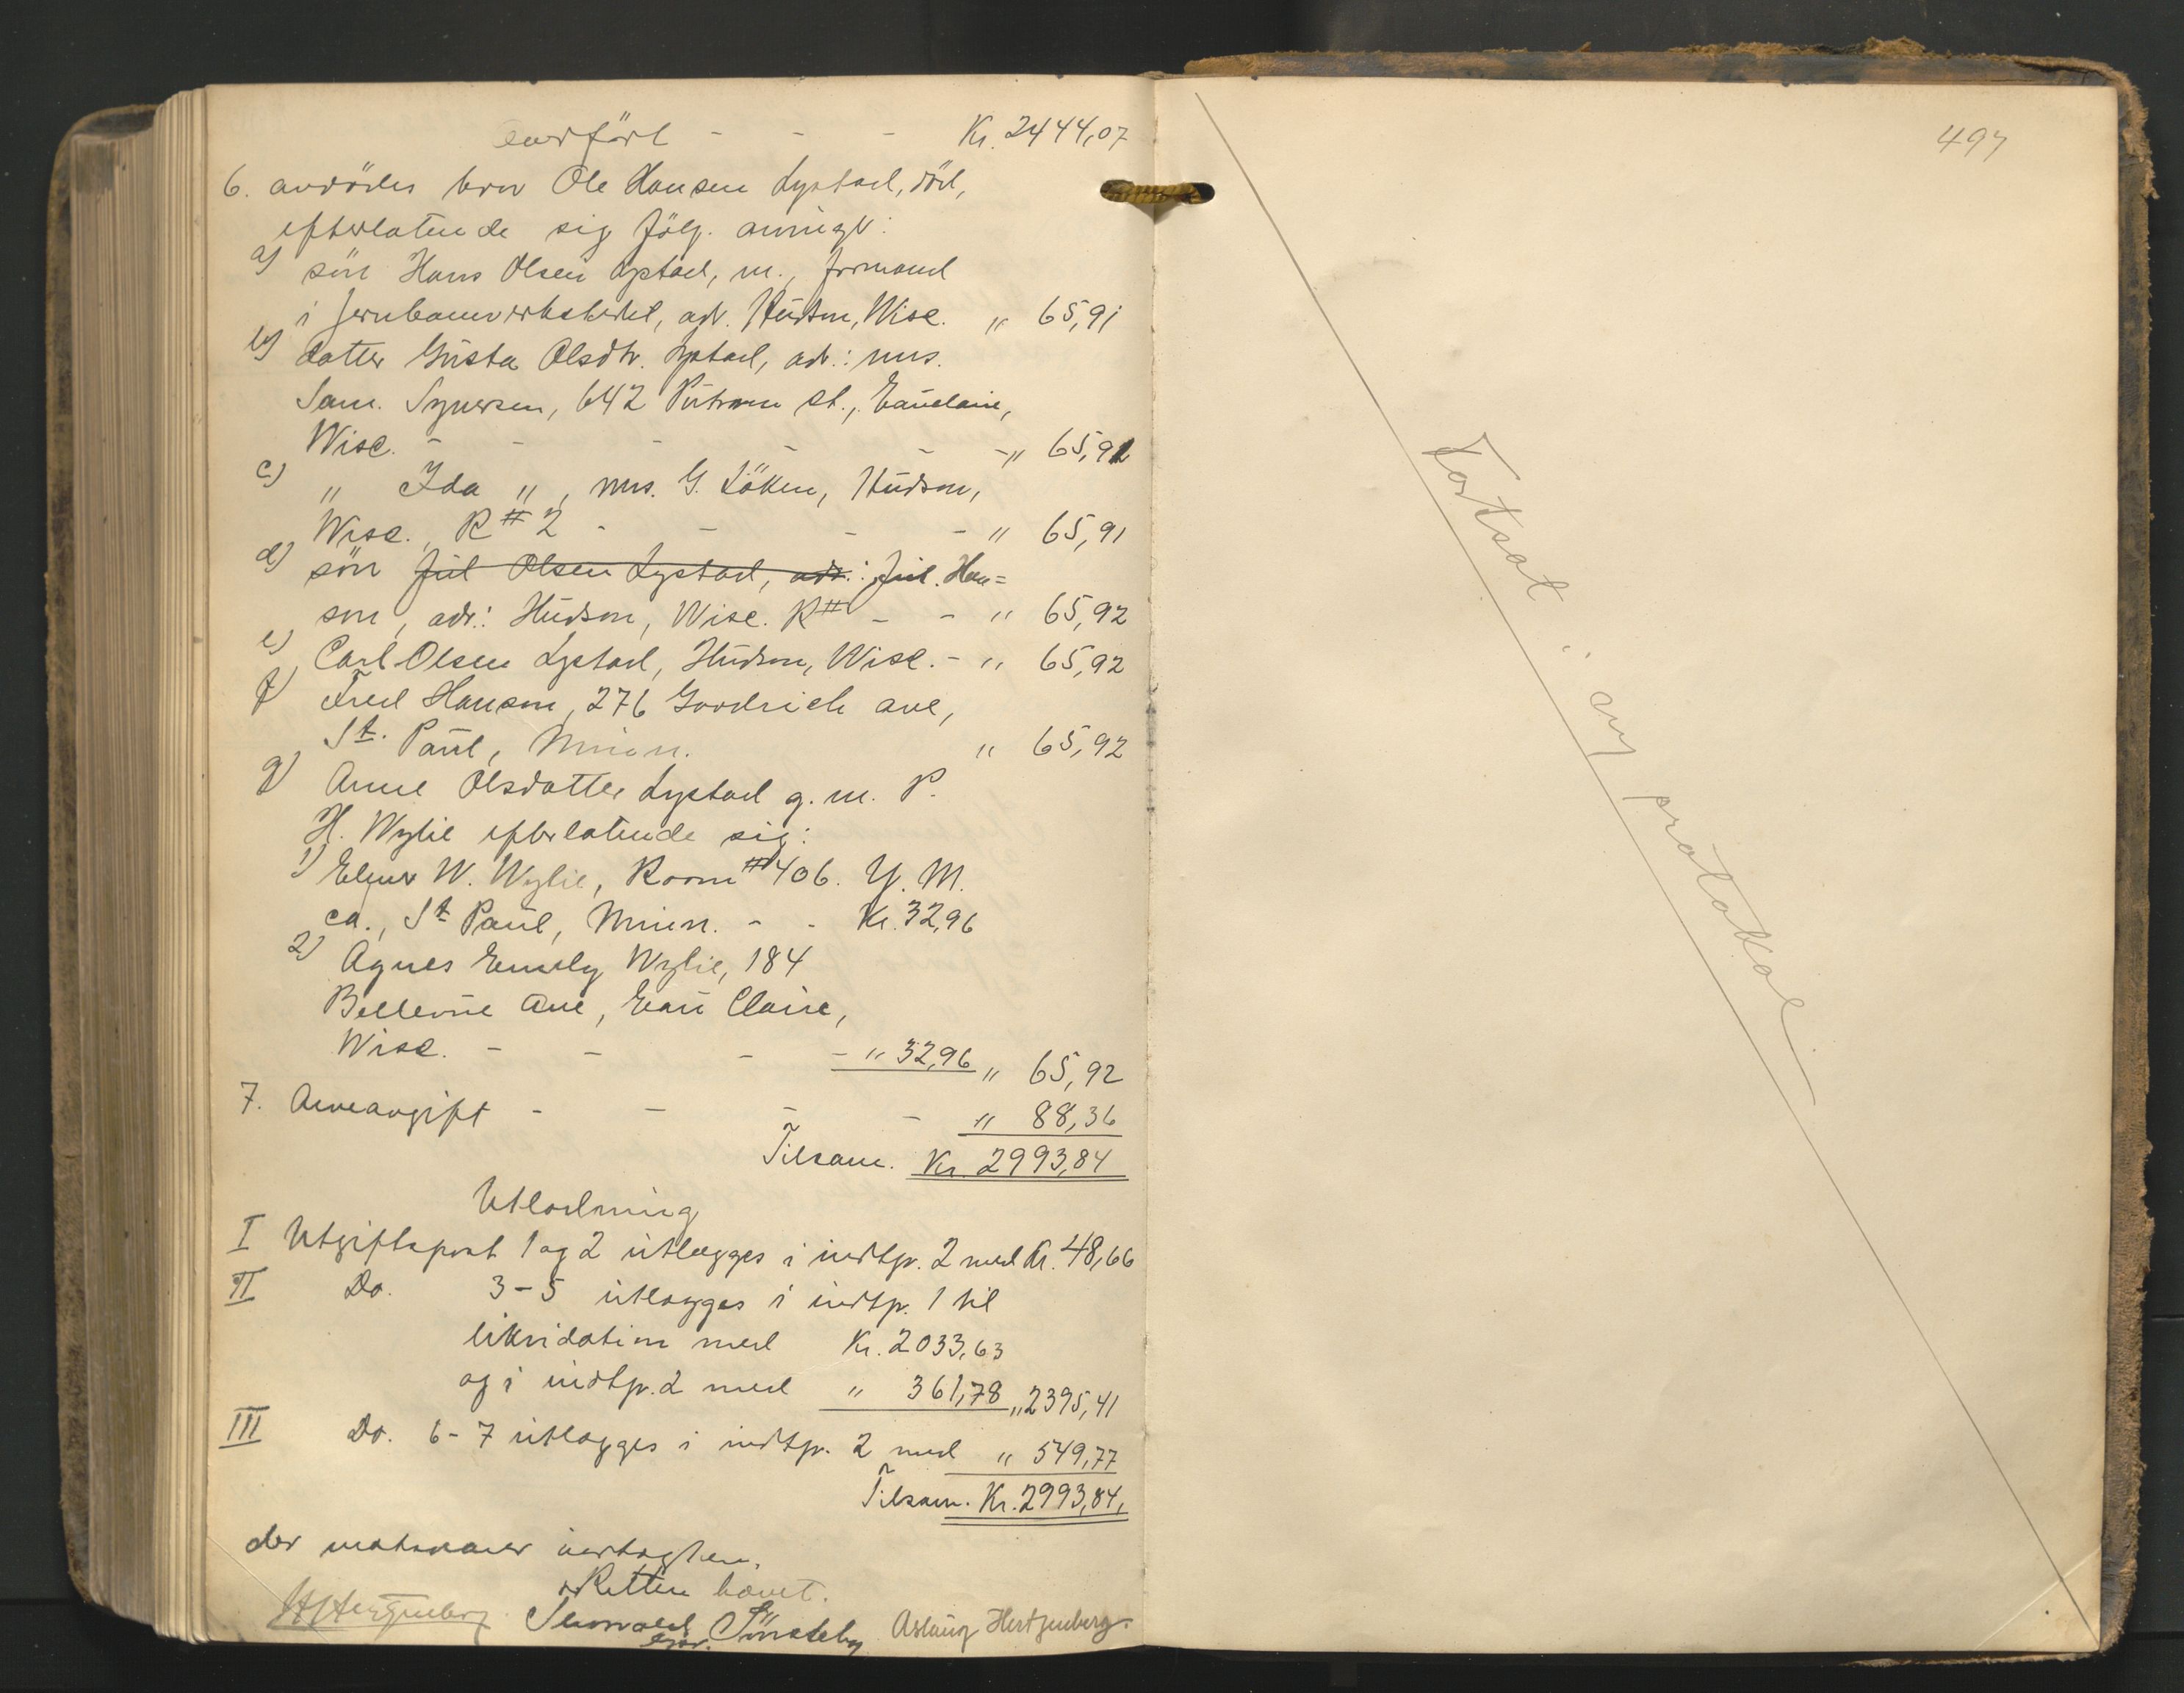 overført - - - Kr. 2444,07
6. avdödes bror Ole Hansen Lystad, död,
efterlatende sig følg. arvinger:
a) sön Hans Olsen Lystad, m., formand
i jernbaneverkstedet, adr. Hudson, Wisc. " 65,91
b) datter Gusta Olsdtr. Lystad, adr.: mrs.
Sam. Synersen, 642 Putnam st., Eauclaire,
Wisc. - - - - - " 65,91
c) " Ida ", mrs. G. Löken, Hudson,
Wisc., R # 2 - - - - " 65,91
d) sön Jul Olsen Lystad, adr.: Jul. Han=
son, adr.: Hudson, Wisc. R # - - " 65,92
e) Carl Olsen Lystad, Hudson, Wisc. - " 65,92
f) Fred Hanson, 276 Goodrich ave,
St. Paul, Minn. " 65,92
g) Anne Olsdatter Lystad g. m. P.
H. Wylie efterlatende sig:
1) Elmer W. Wylie, Room # 406. Y. M.
ca., St Paul, Minn. - - Kr. 32,96
2) Agnes Emily Wylie, 184
Bellevue Ave, Eau Claire,
Wisc. - - - - " 32,96 " 65,92
7. Arveavgift - - - - " 88,36
Tilsam. Kr. 2993,84
Utlodning
I Utgiftspost 1 og 2 utlægges i indtp. 2 med Kr. 48,66
II Do. 3-5 utlægges i indtp. 1 til
likvidation med Kr. 2033,63
og i indtp. 2 med " 361,78 " 2395,41
III Do. 6-7 utlægges i indtp. 2 med " 549,77
Tilsam. Kr. 2993,84,
der
Retten hævet.
Aslaug Hertzenberg.
497
Fortsat i ny protokol